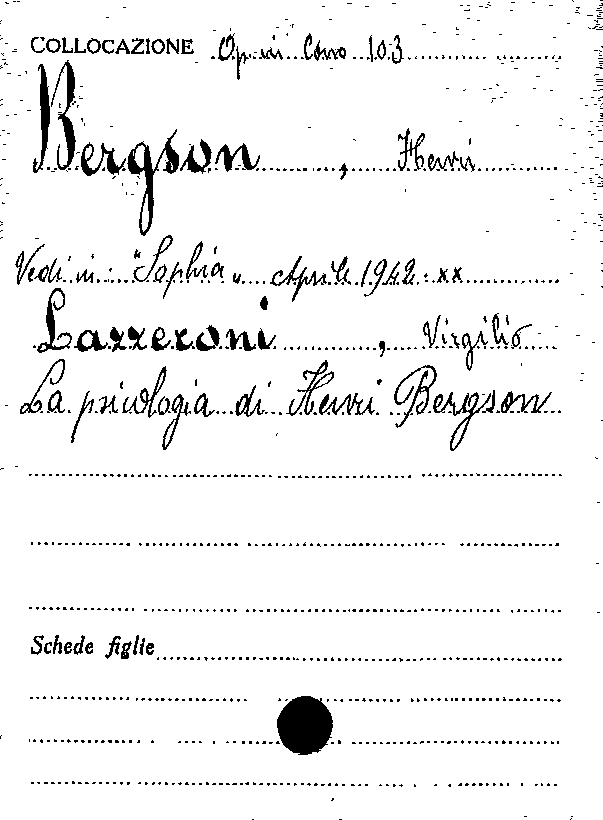 COLLOCAZIONE Op in Cons 103
Bergson, Henri
Vedi in: "Sophia" Aprile 1942·xx
Lazzeroni, Virgilio
La psicologia di Henri Bergson
Schede figlie